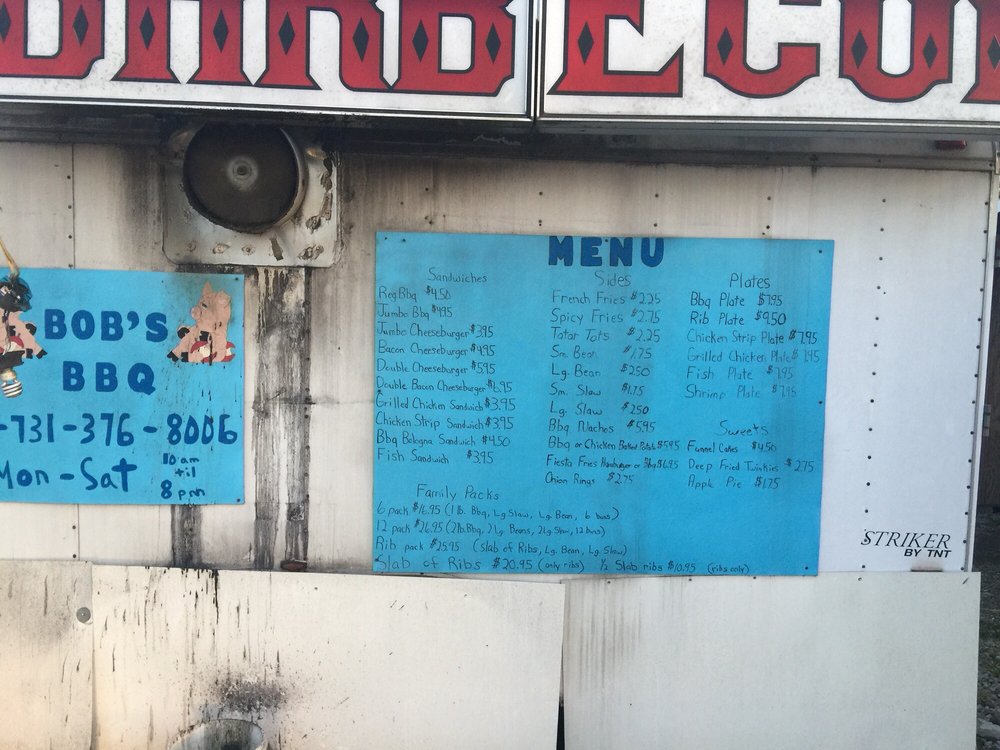 BARBECUE
BOB'S
BBQ
-731-376-8006
Mon-Sat 10 am
til
8 pm
MENU
Sandwiches
Reg Bbq $4.50
Jumbo Bbq $4.95
Jumbo Cheeseburger $3.95
Bacon Cheeseburger $4.95
Double Cheeseburger $5.95
Double Bacon Cheeseburger $6.95
Grilled Chicken Sandwich $3.95
Chicken Strip Sandwich $3.95
Bbq Bologna Sandwich $4.50
Fish Sandwich $3.95
Sides
French Fries $2.25
Spicy Fries $2.75
Tatar Tots $2.25
Sm. Bean $1.75
Lg. Bean $2.50
Sm. Slaw $1.75
Lg. Slaw $2.50
Bbq Nachos $5.95
Bbq or Chicken Baked Potato $5.95
Fiesta Fries Hamburger or Bbq $6.95
Onion Rings $2.75
Plates
Bbq Plate $7.95
Rib Plate $9.50
Chicken Strip Plate $7.95
Grilled Chicken Plate $7.95
Fish Plate $7.95
Shrimp Plate $7.95
Sweets
Funnel Cakes $4.50
Deep Fried Twinkies $2.75
Apple Pie $1.75
Family Packs
6 pack $16.95 (1 lb. Bbq, Lg. Slaw, Lg. Bean, 6 buns)
12 pack $26.95 (2 lb. Bbq, 2 Lg. Beans, 2 Lg. Slaw, 12 buns)
Rib pack $25.95 (slab of Ribs, Lg. Bean, Lg. Slaw)
Slab of Ribs $20.95 (only ribs) ½ Slab ribs $10.95 (ribs only)
STRIKER
BY TNT